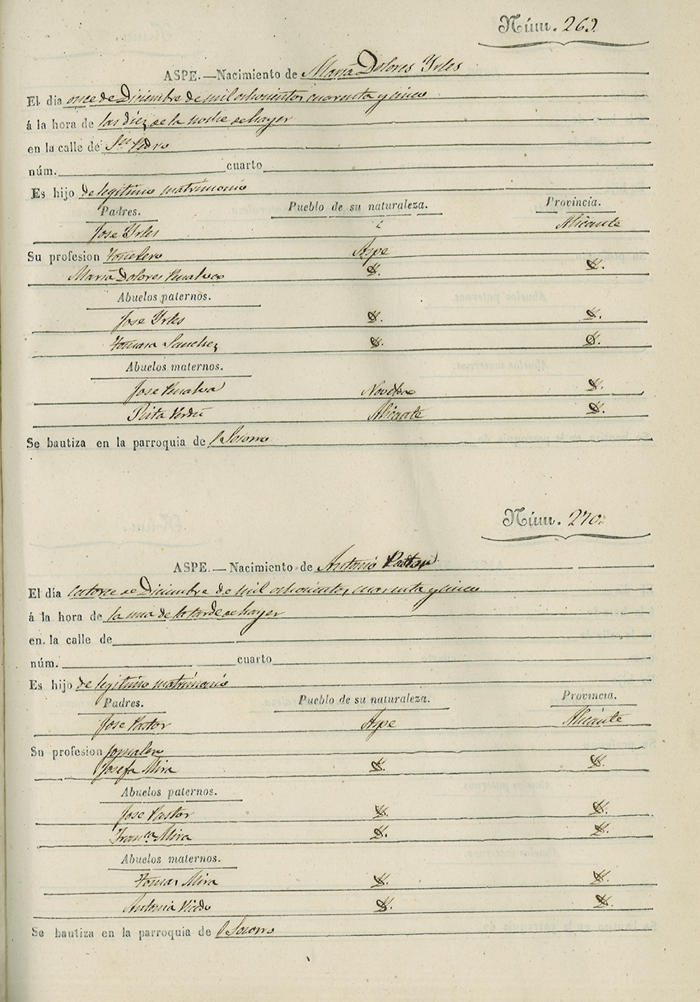 Núm. 269.
ASPE.—Nacimiento de María Dolores Yrles
El dia once de Diciembre de mil ochocientos cuarenta y cinco
á la hora de las diez de la noche de hayer
en la calle de Sn Pedro
núm. cuarto
Es hijo de legitimo matrimonio
Padres. Pueblo de su naturaleza. Provincia.
Jose Yrles Alicante
Su profesion Aspe
María Dolores D. D.
Abuelos paternos.
Jose Yrles D. D.
Tomasa Sanchez D. D.
Abuelos maternos.
Jose Novelda D.
Rita Verdú Alicante D.
Se bautiza en la parroquia de l Socorro
Núm. 270.
ASPE.—Nacimiento de Antonio Pastor
El día catorce de Diciembre de mil ochocientos cuarenta y cinco
á la hora de la una de la tarde de hayer
en la calle de
núm. cuarto
Es hijo de legitimo matrimonio
Padres. Pueblo de su naturaleza. Provincia.
Jose Pastor Aspe Alicante
Su profesion jornalero
Josefa Mira D. D.
Abuelos paternos.
Jose Pastor D. D.
Franca Mira D. D.
Abuelos maternos.
Tomas Mira D. D.
Antonia D. D.
Se bautiza en la parroquia de l Socorro